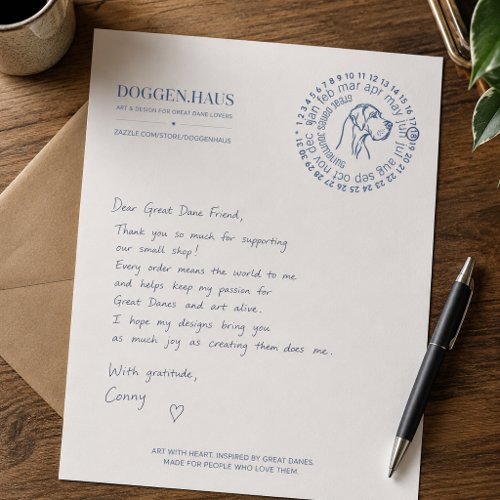 DOGGEN.HAUS
ART & DESIGN FOR GREAT DANE LOVERS
ZAZZLE.COM/STORE/DOGGENHAUS
1 2 3 4 5 6 7 8 9 10 11 12 13 14 15 16 17 18 19 20 21 22 23 24 25 26 27 28 29 30 31
jan feb mar apr may jun jul aug sep oct nov dec
Dear Great Dane Friend,
Thank you so much for supporting
our small shop!
Every order means the world to me
and helps keep my passion for
Great Danes and art alive.
I hope my designs bring you
as much joy as creating them does me.
With gratitude,
Conny
ART WITH HEART. INSPIRED BY GREAT DANES.
MADE FOR PEOPLE WHO LOVE THEM.